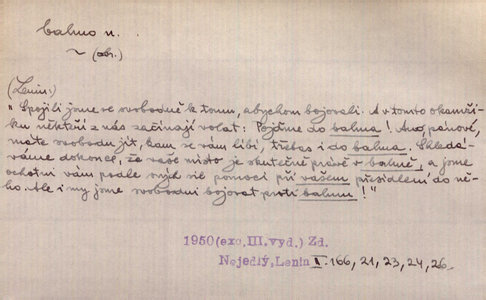 bahno n.
~ (obr.)
(Lenin:)
"Spojili jsme se svobodně k tomu, abychom bojovali. A v tomto okamži-
ku někteří z nás začínají volat: Pojďme do bahna! Ano, pánové,
máte svobodu jít, kam se vám líbí, třebas i do bahna. Shledá-
váme dokonce, že vaše místo je skutečně právě v bahně, a jsme
ochotni vám podle svých sil pomoci při vašem přesídlení do ně-
ho. Ale i my jsme svobodni bojovat proti bahnu!"
1950 (exc. III. vyd.) Zd.
Nejedlý, Lenin I. 166, 21, 23, 24, 26.